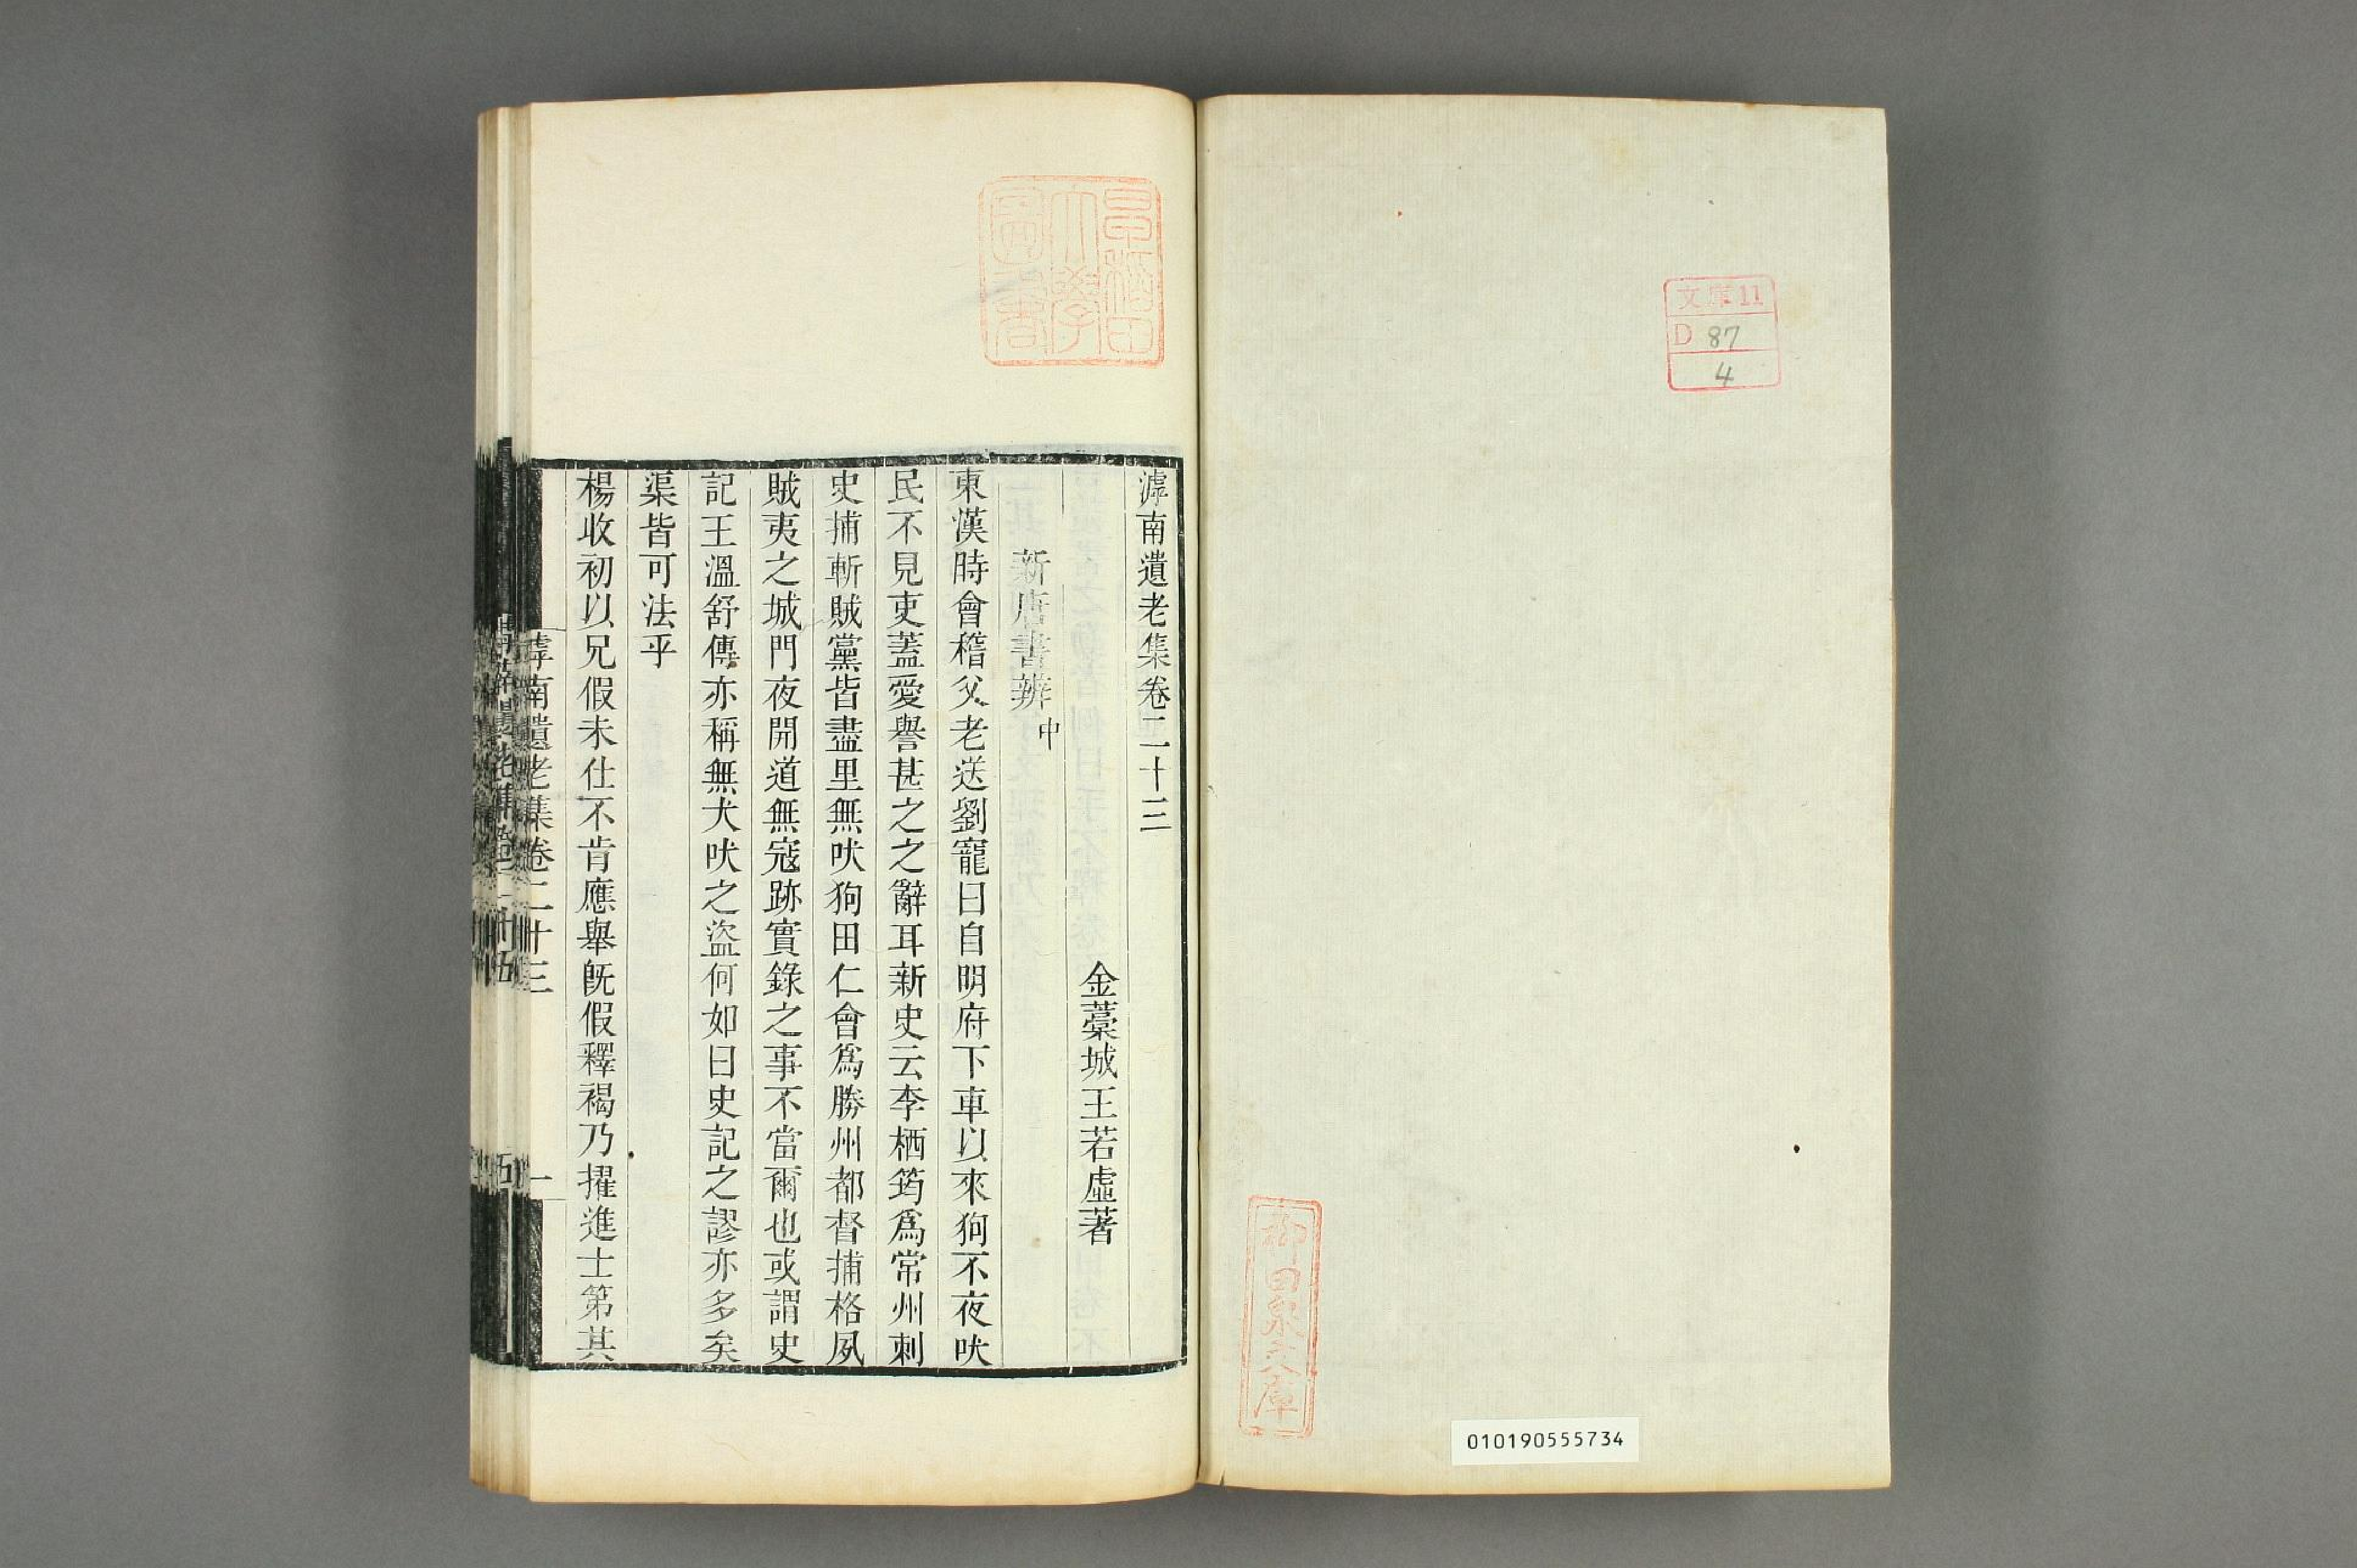 文庫11
D 87
4
柳田泉文庫
010190555734
早稲田
大學
圖書
滹南遺老集卷二十三
金藁城王若虛著
新唐書辨中
東漢時會稽父老送劉寵曰自明府下車以來狗不夜吠
民不見吏蓋愛譽甚之之辭耳新史云李栖筠爲常州刺
史捕斬賊黨皆盡里無吠狗田仁會爲勝州都督捕格夙
賊夷之城門夜開道無寇跡實錄之事不當爾也或謂史
記王溫舒傳亦稱無犬吠之盜何如曰史記之謬亦多矣
渠皆可法乎
楊收初以兄假未仕不肯應舉旣假釋褐乃擢進士第其
滹南遺老集卷二十三
一